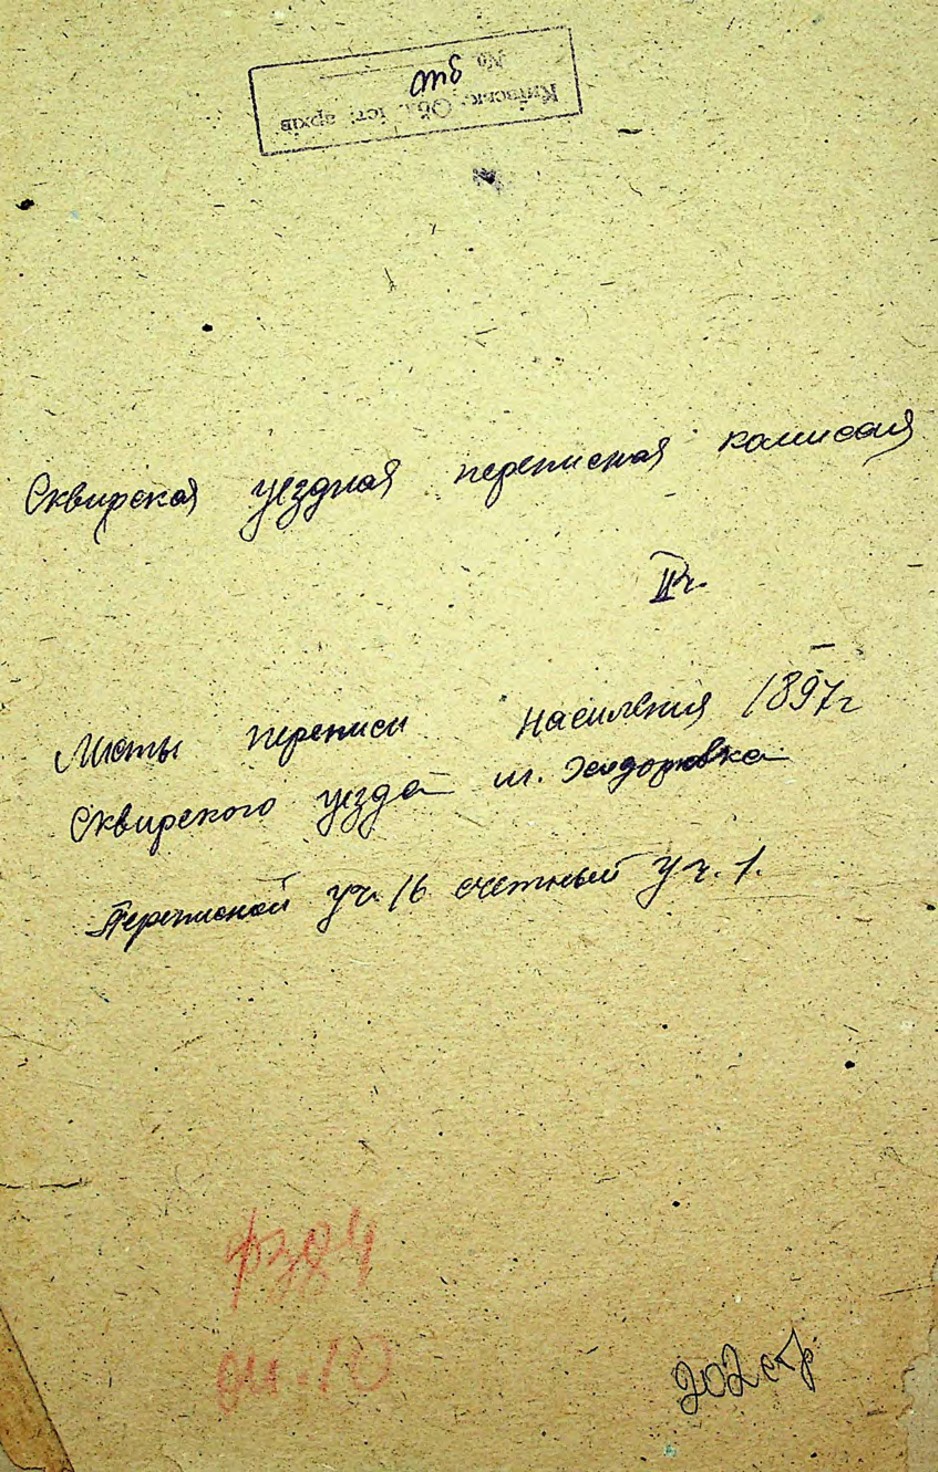 Київське Обл. іст. архів
No
Сквирская уездная переписная комиссия
II ч.
Листы переписи населения 1897 г
Сквирского уезда м. Ходорковка
Переписной уч. 16 счетный уч. 1.
ф 384
оп. 10
202 стр